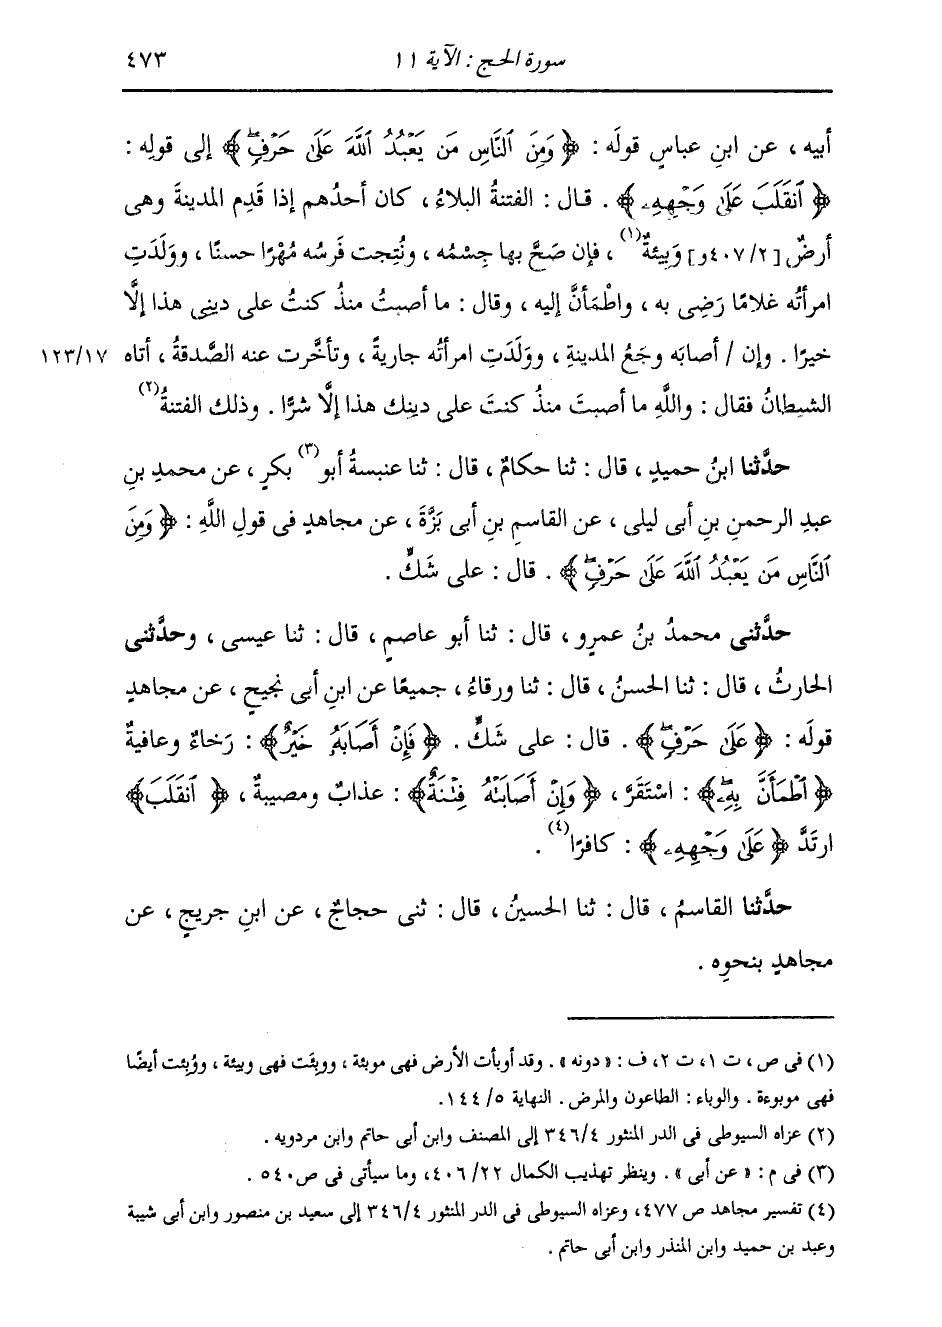 سورة الحج : الآية ١١
٤٧٣
أبيه ، عن ابنِ عباسٍ قولَه : ﴿ وَمِنَ ٱلنَّاسِ مَن يَعْبُدُ ٱللَّهَ عَلَىٰ حَرْفٍۖ ﴾ إلى قولِه :
﴿ ٱنقَلَبَ عَلَىٰ وَجْهِهِۦ ﴾ . قال : الفتنةُ البلاءُ ، كان أحدُهم إذا قَدِم المدينةَ وهى
أرضٌ [٤٠٧/٢و] وَبِيئةٌ(١) ، فإن صَحَّ بها جِسْمُه ، ونُتِجت فَرسُه مُهْرًا حسنًا ، وولَدَتِ
امرأتُه غلامًا رَضِى به ، واطْمَأنَّ إليه ، وقال : ما أصبتُ منذُ كنتُ على دينِى هذا إلَّا
خيرًا . وإن / أصابَه وجَعُ المدينةِ ، وولَدَتِ امرأتُه جاريةً ، وتأخَّرت عنه الصَّدقةُ ، أتاه
١٢٣/١٧
الشيطانُ فقال : واللَّهِ ما أصبتَ منذُ كنتَ على دينِك هذا إلَّا شرًّا . وذلك الفتنةُ(٢)
حدَّثنا ابنُ حميدٍ ، قال : ثنا حكامٌ ، قال : ثنا عنبسةُ أبو(٣) بكرٍ ، عن محمدِ بنِ
عبدِ الرحمنِ بنِ أبى ليلى ، عن القاسمِ بنِ أبى بَزَّةَ ، عن مجاهدٍ فى قولِ اللَّهِ : ﴿ وَمِنَ
ٱلنَّاسِ مَن يَعْبُدُ ٱللَّهَ عَلَىٰ حَرْفٍۖ ﴾ . قال : على شَكٍّ .
حدَّثنى محمدُ بنُ عمرٍو ، قال : ثنا أبو عاصمٍ ، قال : ثنا عيسى ، وحدَّثنى
الحارثُ ، قال : ثنا الحسنُ ، قال : ثنا ورقاءُ ، جميعًا عن ابنِ أبى نجيحٍ ، عن مجاهدٍ
قولَه : ﴿ عَلَىٰ حَرْفٍۖ ﴾ . قال : على شَكٍّ . ﴿ فَإِنْ أَصَابَهُۥ خَيْرٌ ﴾ : رَخاءٌ وعافيةٌ
﴿ ٱطْمَأَنَّ بِهِۦۖ ﴾ : اسْتَقَرَّ ، ﴿ وَإِنْ أَصَابَتْهُ فِتْنَةٌ ﴾ : عذابٌ ومصيبةٌ ، ﴿ ٱنقَلَبَ ﴾
ارتَدَّ ﴿ عَلَىٰ وَجْهِهِۦ ﴾ : كافرًا(٤) .
حدَّثنا القاسمُ ، قال : ثنا الحسينُ ، قال : ثنى حجاجٌ ، عن ابنِ جريجٍ ، عن
مجاهدٍ بنحوِه .
(١) فى ص ، ت ١، ت ٢، ف : « دونه » . وقد أوبأت الأرض فهى موبئة ، ووبِئَت فهى وبيئة ، ووُبِئت أيضًا
فهى موبوءة . والوباء : الطاعون والمرض . النهاية ٥/ ١٤٤.
(٢) عزاه السيوطى فى الدر المنثور ٣٤٦/٤ إلى المصنف وابن أبى حاتم وابن مردويه .
(٣) فى م : « عن أبى » . وينظر تهذيب الكمال ٢٢/ ٤٠٦، وما سيأتى فى ص ٥٤٠ .
(٤) تفسير مجاهد ص ٤٧٧، وعزاه السيوطى فى الدر المنثور ٣٤٦/٤ إلى سعيد بن منصور وابن أبى شيبة
وعبد بن حميد وابن المنذر وابن أبى حاتم .